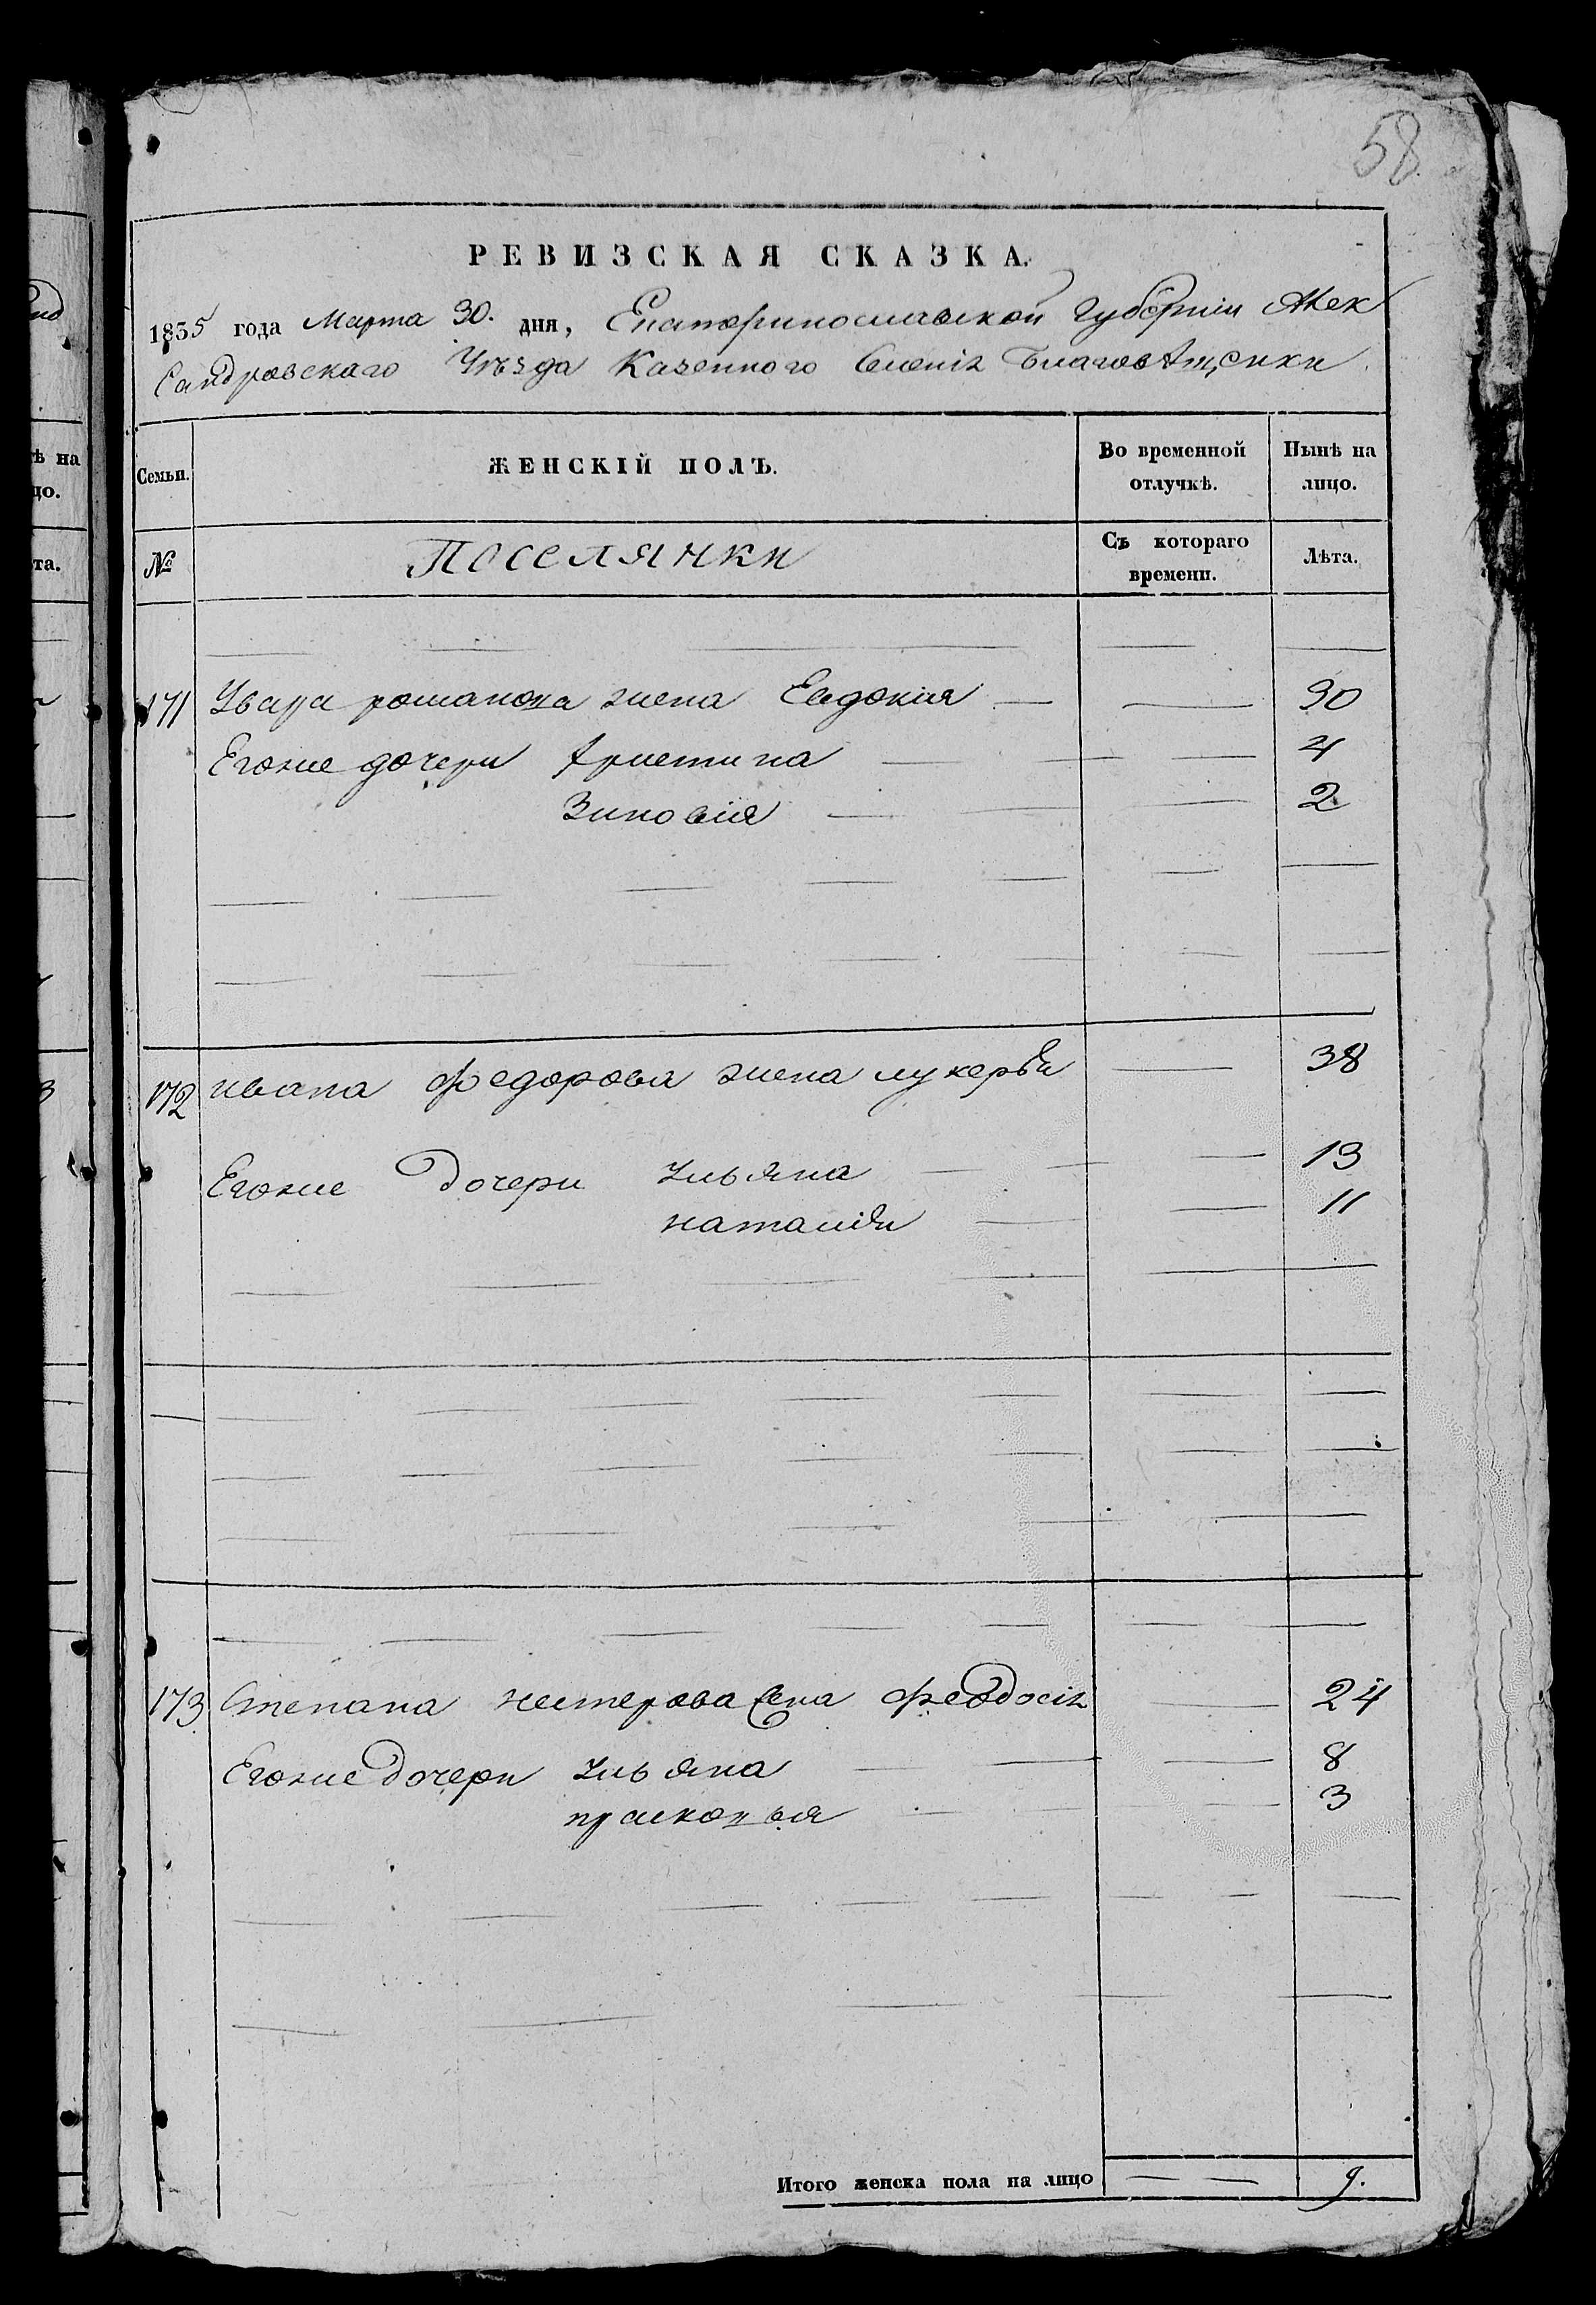 58
РЕВИЗСКАЯ СКАЗКА.
1835 года Марта 30. дня, Екатеринославской Губерніи Алек
Сандровскаго Уѣзда Казенного Селенія Благовѣщенки
Семьи.
ЖЕНСКІЙ ПОЛЪ.
Во временной отлучкѣ.
Нынѣ на лицо.
№
Поселянки
Съ котораго времени.
Лѣта.
171 Увара романова жена Евдокия — — 30
Егоже дочери Христина — — 4
Зиновия — — 2
172 ивана федорова жена лукерья — 38
Егоже Дочери Ульяна — — 13
наталія — — 11
173 Степана нестерова жена феодосія — 24
Егоже Дочери Ульяна — — 8
прасковья — — 3
Итого женска пола на лицо — — 9.
ѣ на
цо.
та.